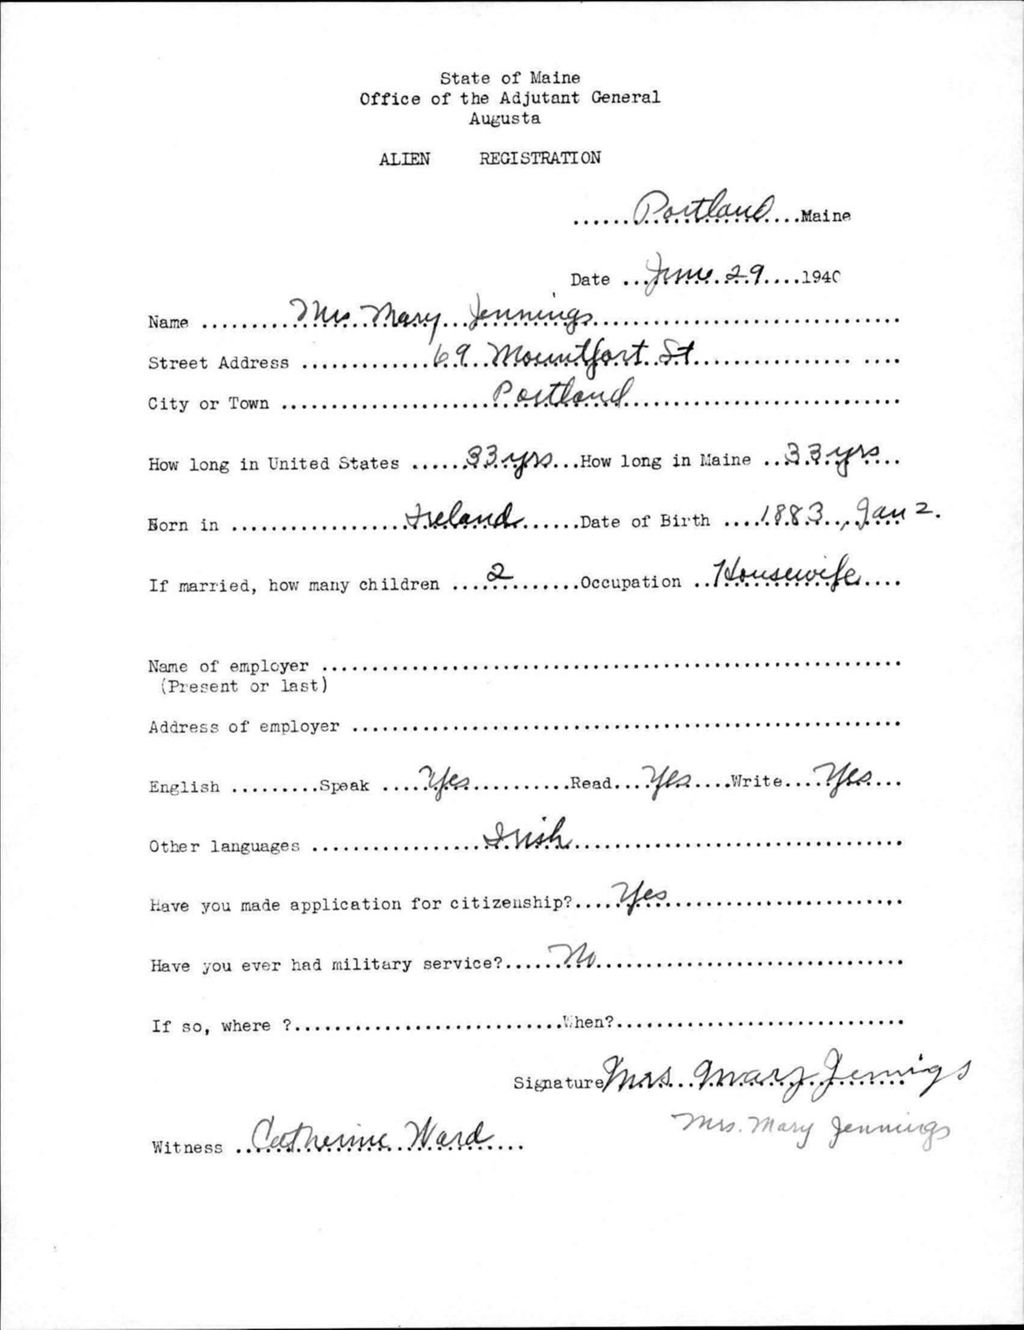 State of Maine
Office of the Adjutant General
Augusta
ALIEN REGISTRATION
......Portland...Maine
Date ...June 29....1940
Name .........Mrs Mary Jennings...............................
Street Address .............69 Mountfort St................ ....
City or Town .....................Portland...........................
How long in United States ......33 yrs...How long in Maine ..33 yrs...
Born in .................Ireland......Date of Birth ....1883, Jan 2.
If married, how many children ....2........Occupation ..Housewife....
Name of employer ..........................................................
(Present or last)
Address of employer .......................................................
English .........Speak ....Yes..........Read....Yes....Write....Yes...
Other languages .................Irish.................................
Have you made application for citizenship?....Yes........................
Have you ever had military service?......No...............................
If so, where ?...........................When?.............................
Signature Mrs. Mary Jennigs
Mrs. Mary Jennings
Witness ..Catherine Ward....